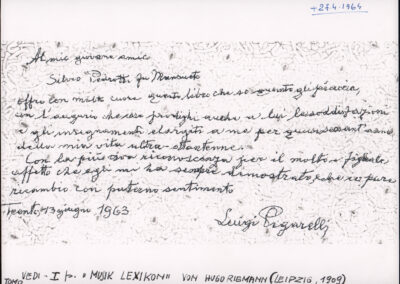 +27.4.1964
Al mio giovane amico
Silvio Pedrotti fu Mansueto
offro con molto cuore questo libro che so quanto gli piaccia,
con l'augurio ch'esso prodighi anche a lui le soddisfazioni
e gli insegnamenti elargiti a me per quasi sessant'anni
della mia vita ultra-ottantenne.
Con la più viva riconoscenza per il molto e figliale
affetto che egli mi ha sempre dimostrato e che io pure
ricambio con paterno sentimento
Trento, 13 giugno 1963
Luigi Pigarelli
VEDI - I p. "MUSIK LEXIKON" VON HUGO RIEMANN (LEIPZIG, 1909)
TOMO